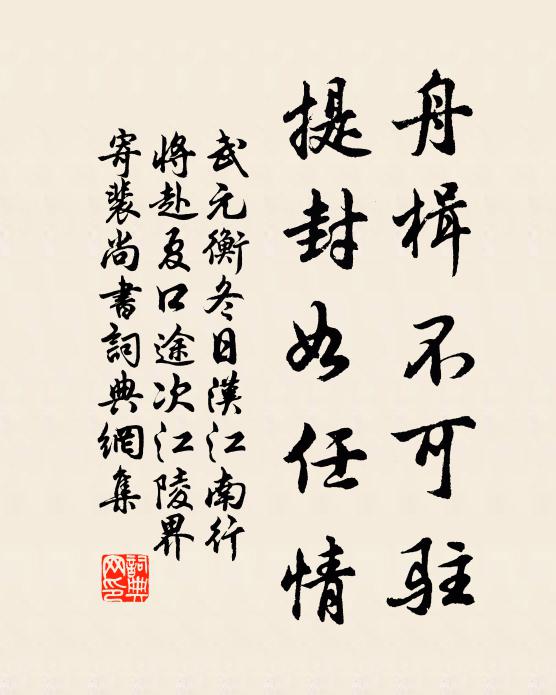 舟楫不可驻
提封如任情
武元衡冬日漢江南行
将赴夏口途次江陵界
寄裴尚書詞典網集
詞典网印